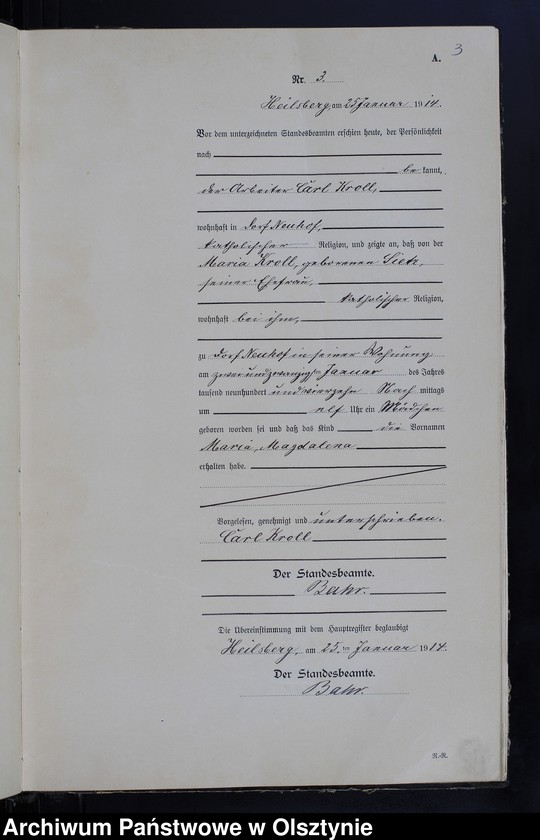 A. 3
Nr. 3.
Heilsberg am 25 Januar 1914.
Vor dem unterzeichneten Standesbeamten erschien heute, der Persönlichkeit
nach
be kannt,
der Arbeiter Carl Kroll,
wohnhaft in Dorf Neuhof,
katholischer Religion, und zeigte an, daß von der
Maria Kroll, geborenen Sietz,
seiner Ehefrau,
katholischer Religion,
wohnhaft bei ihm,
zu Dorf Neuhof in seiner Wohnung
am zweiundzwanzigsten Januar des Jahres
tausend neunhundert undvierzehn Nach mittags
um elf Uhr ein Mädchen
geboren worden sei und daß das Kind die Vornamen
Maria, Magdalena
erhalten habe.
Vorgelesen, genehmigt und unterschrieben.
Carl Kroll
Der Standesbeamte.
Bahr.
Die Übereinstimmung mit dem Hauptregister beglaubigt
Heilsberg, am 25. ten Januar 1914.
Der Standesbeamte.
Bahr.
R.-R.
Archiwum Państwowe w Olsztynie